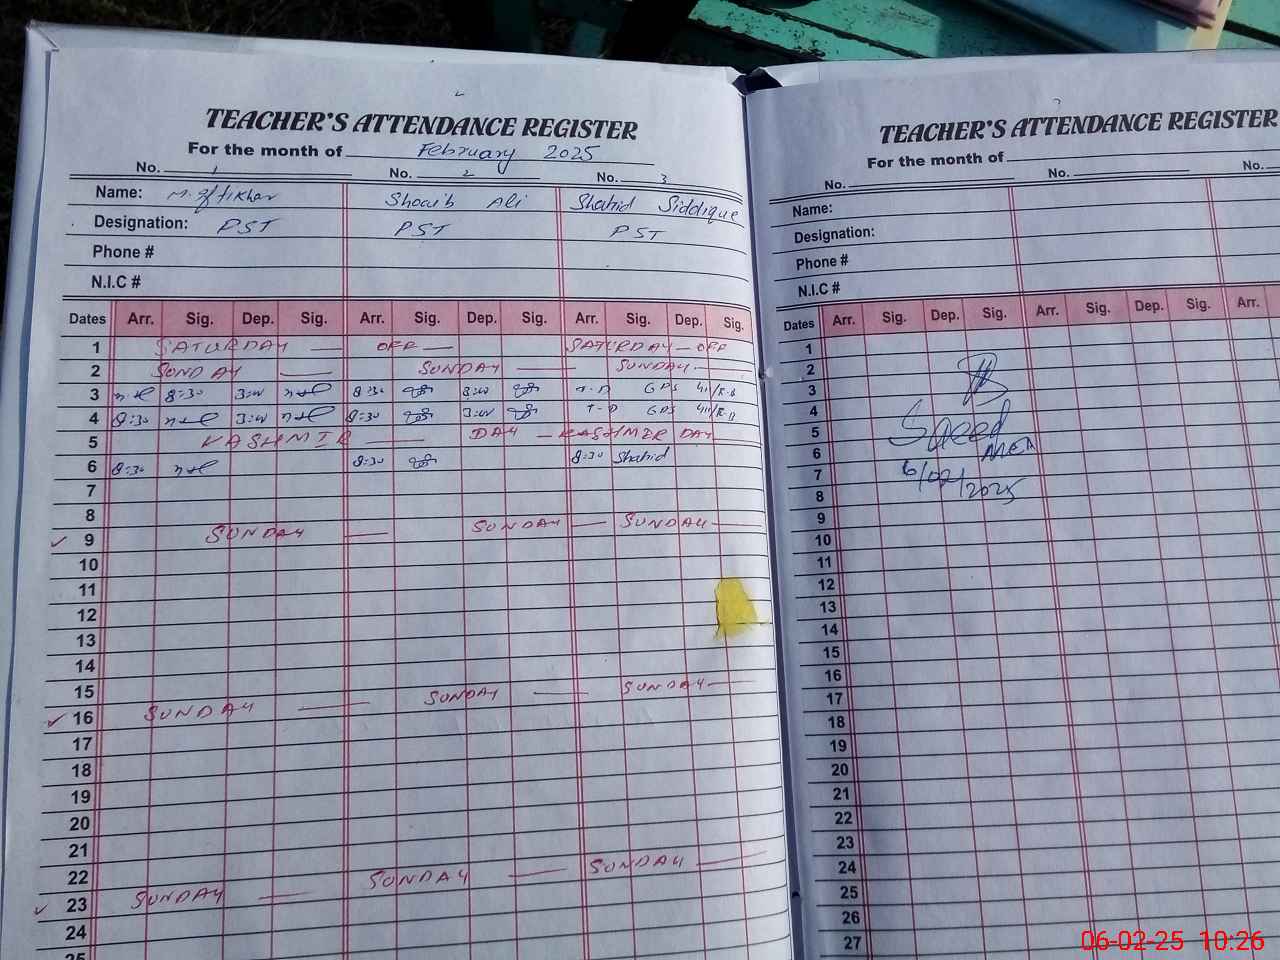 TEACHER'S ATTENDANCE REGISTER
For the month of February 2025
No. 1 No. 2 No. 3
Name: M. Iftikhar Shoaib Ali Shahid Siddique
Designation: PST PST PST
Phone #
N.I.C #
Dates Arr. Sig. Dep. Sig. Arr. Sig. Dep. Sig. Arr. Sig. Dep. Sig.
1 SATURDAY — OFF — SATURDAY — OFF
2 SUNDAY — SUNDAY — SUNDAY —
3 8:30 3:00 8:30 3:00 T-D GPS 411/R.B
4 8:30 3:00 8:30 3:00 T-D GPS 411/R.B
5 KASHMIR — DAY — KASHMIR DAY
6 8:30 8:30 8:30 Shahid
7
8
9 SUNDAY — SUNDAY — SUNDAY —
10
11
12
13
14
15
16 SUNDAY — SUNDAY — SUNDAY —
17
18
19
20
21
22
23 SUNDAY — SUNDAY — SUNDAY —
24
25
TEACHER'S ATTENDANCE REGISTER
For the month of
No. No. No.
Name:
Designation:
Phone #
N.I.C #
Dates Arr. Sig. Dep. Sig. Arr. Sig. Dep. Sig. Arr.
1
2
3
4
5 Saeed
6 MEA
7 6/02/2025
8
9
10
11
12
13
14
15
16
17
18
19
20
21
22
23
24
25
26
27
06-02-25 10:26